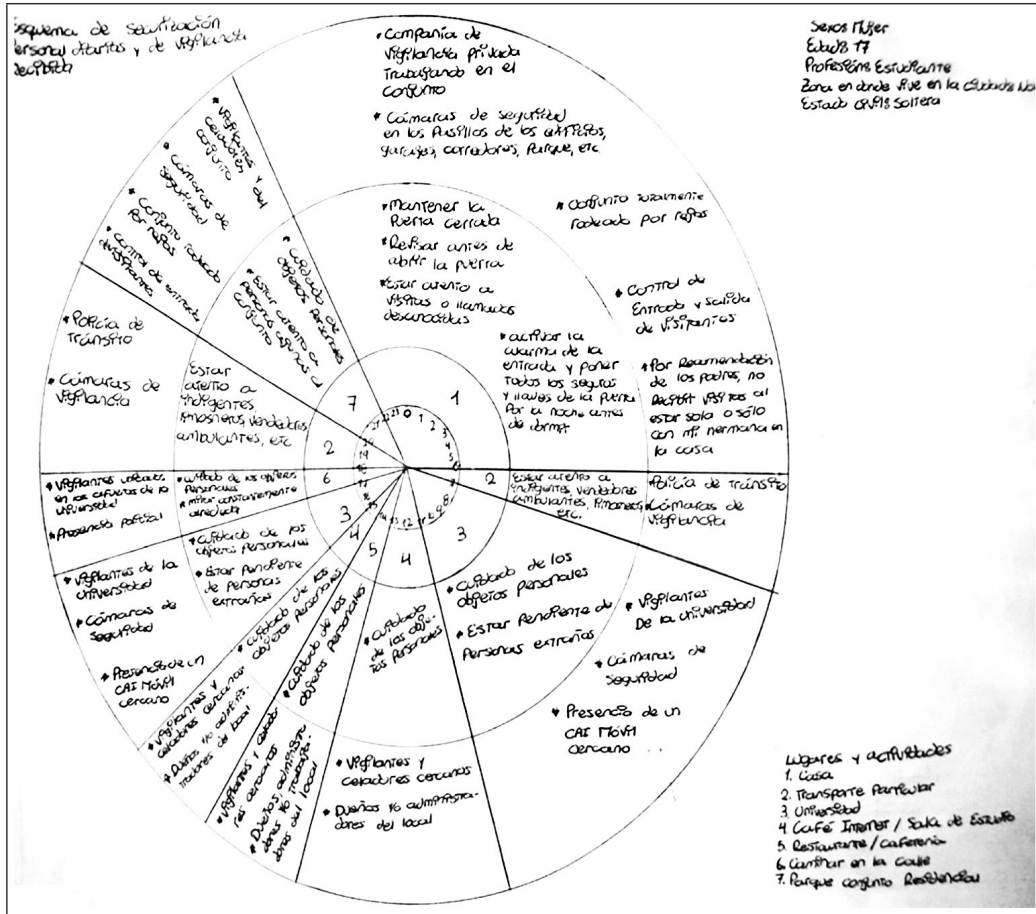 Esquema de securización
personal diarias y de vigilancia
recibida
Sexo: Mujer
Edad: 17
Profesión: Estudiante
Zona en donde vive en la ciudad: No
Estado civil: Soltera
* Compañía de
vigilancia privada
trabajando en el
conjunto
* Cámaras de seguridad
en los pasillos de los edificios,
garajes, corredores, parque, etc
* conjunto totalmente
rodeado por rejas
* Control de
Entrada y salida
de visitantes
* Por Recomendación
de los padres, no
Recibir visitas al
estar sola o sólo
con mi hermana en
la casa
* Mantener la
puerta cerrada
* Revisar antes de
abrir la puerta
* Estar atento a
visitas o llamadas
desconocidas
* activar la
alarma de la
entrada y poner
todos los seguros
y llaves de la puerta
Por la noche antes
de dormir
1
Estar atento a
indigentes, vendedores
ambulantes, limosneros,
etc.
Policía de Tránsito
Cámaras de
vigilancia
2
* Cuidado de los
objetos personales
* Estar Pendiente de
Personas extrañas
* Vigilantes
De la universidad
* Cámaras de
Seguridad
* Presencia de un
CAI Móvil
cercano
3
* cuidado
de los obje-
tos personales
* Vigilantes y
celadores cercanos
* Dueños y/o administra-
dores del local
4
* Cuidado de los
objetos personales
* Vigilantes y celado-
res cercanos
* Dueños, administra-
dores y/o trabaja-
dores del local
5
* cuidado de los
objetos personales
* Vigilantes y
celadores cercanos
* Dueños y/o adminis-
tradores del local
4
* Cuidado de los
objetos personales
* Estar Pendiente
de personas
extrañas
* Vigilantes de la
universidad
* Cámaras de
seguridad
* Presencia de un
CAI Móvil
cercano
3
* cuidado de los objetos
personales
* mirar constantemente
alrededor
* Vigilantes ubicados
en las afueras de la
universidad
* Presencia policial
6
Estar
atento a
indigentes,
limosneros, vendedores
ambulantes, etc
* Policía de
Tránsito
* Cámaras de
vigilancia
2
* Cuidado de
objetos personales
* Estar atento a
personas ajenas al
conjunto
* Vigilantes y
celadores del
conjunto
* Cámaras de
seguridad
* Conjunto rodeado
por rejas
* control de entrada
de visitantes
7
0 1 2 3 4 5 6 7 8 9 10 11 12 13 14 15 16 17 18 19 20 21 22 23
Lugares y actividades
1. Casa
2. Transporte Particular
3. Universidad
4. Café Internet / Sala de Estudio
5. Restaurante / cafetería
6. Caminar en la calle
7. Parque conjunto Residencial